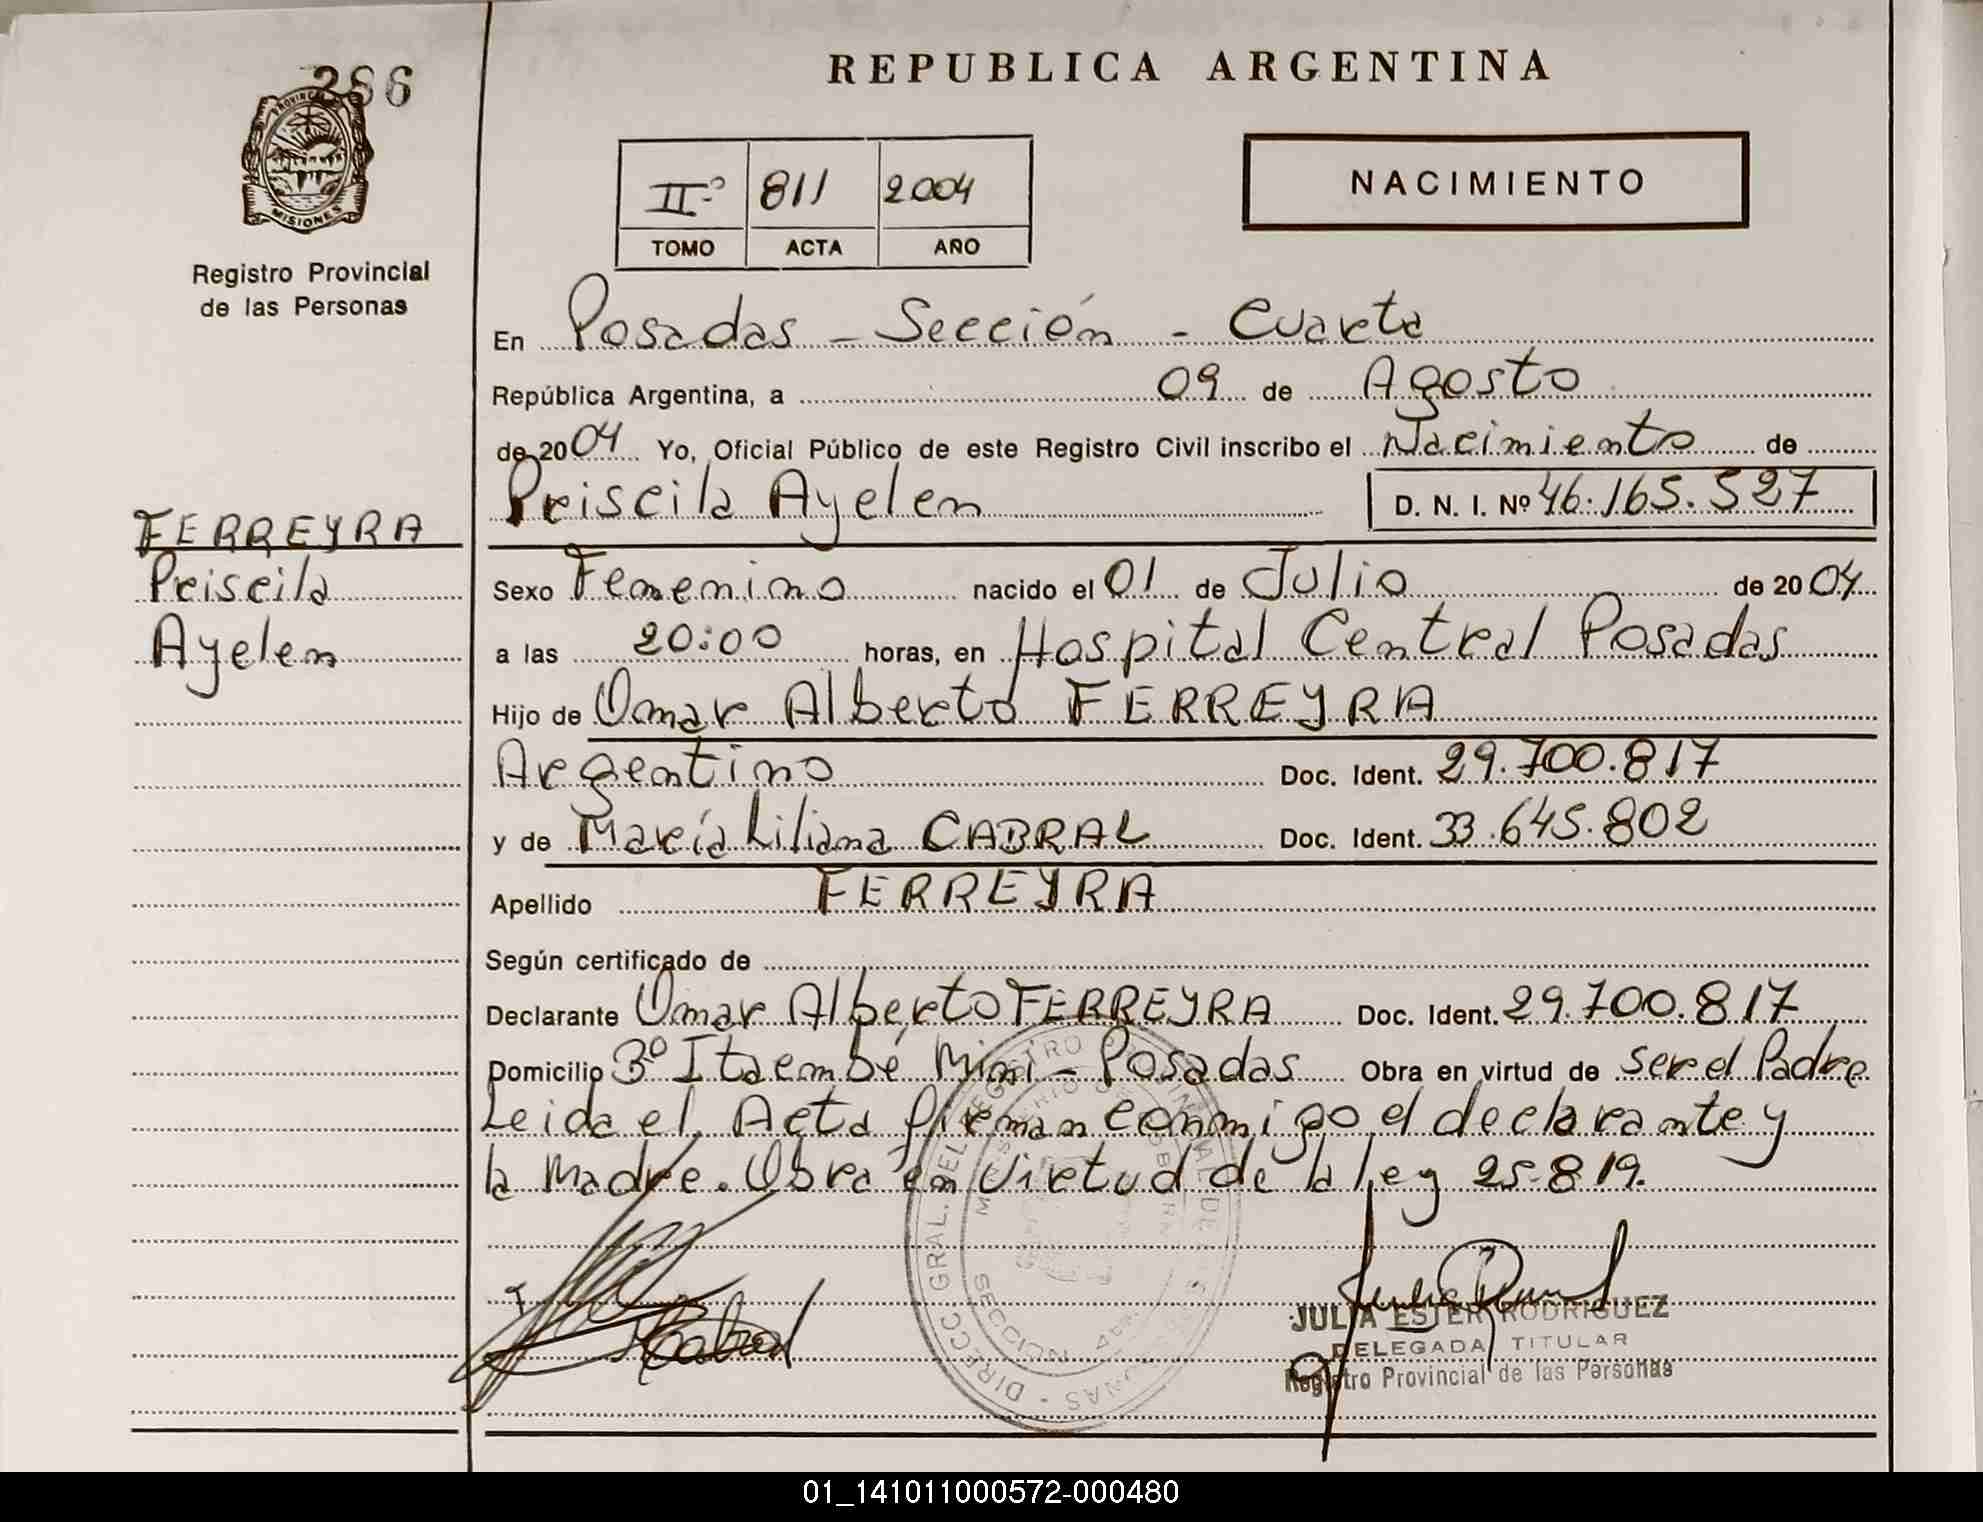 286
PROVINCIA DE
MISIONES
Registro Provincial
de las Personas
FERREYRA
Priscila
Ayelen
REPUBLICA ARGENTINA
IIº 811 2004
TOMO ACTA AÑO
NACIMIENTO
En Posadas - Sección - Cuarta
República Argentina, a 09 de Agosto
de 2004 Yo, Oficial Público de este Registro Civil inscribo el Nacimiento de
Priscila Ayelen D. N. I. Nº 46.165.527
Sexo Femenino nacido el 01 de Julio de 2004
a las 20:00 horas, en Hospital Central Posadas
Hijo de Omar Alberto FERREYRA
Argentino Doc. Ident. 29.700.817
y de María Liliana CABRAL Doc. Ident. 33.645.802
Apellido FERREYRA
Según certificado de
Declarante Omar Alberto FERREYRA Doc. Ident. 29.700.817
Domicilio Bº Itaembé Mini - Posadas Obra en virtud de ser el Padre
Leida el Acta firman conmigo el declarante y
la Madre. Obra en Virtud de la ley 25.819.
Cabral
DIRECC. GRAL. DEL REGISTRO PROVINCIAL DE LAS PERSONAS
SECCION 4ta.
JULIA ESTER RODRIGUEZ
DELEGADA TITULAR
Registro Provincial de las Personas
01_141011000572-000480